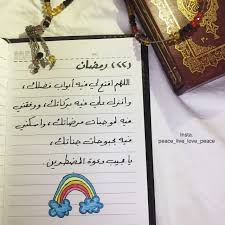 (٢٢) رمضان
اللهم افتح لي فيه أبواب فضلك،
وانزل علي فيه بركاتك، ووفقني
فيه لموجبات مرضاتك، واسكني
فيه بحبوحات جناتك،
يا مجيب دعوة المضطرين
Insta:
peace_live_love_peace